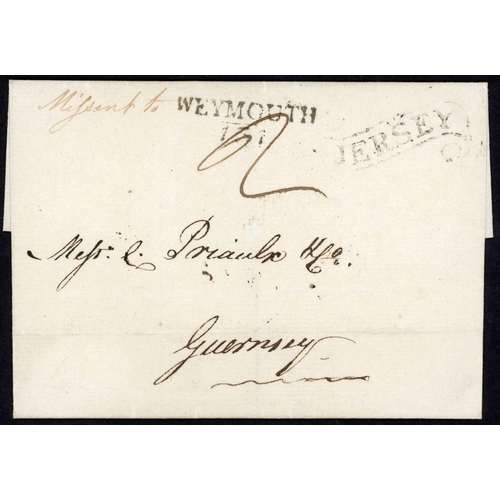 Missent to WEYMOUTH
2
JERSEY
Messrs. C. Priaulx & Co.
Guernsey